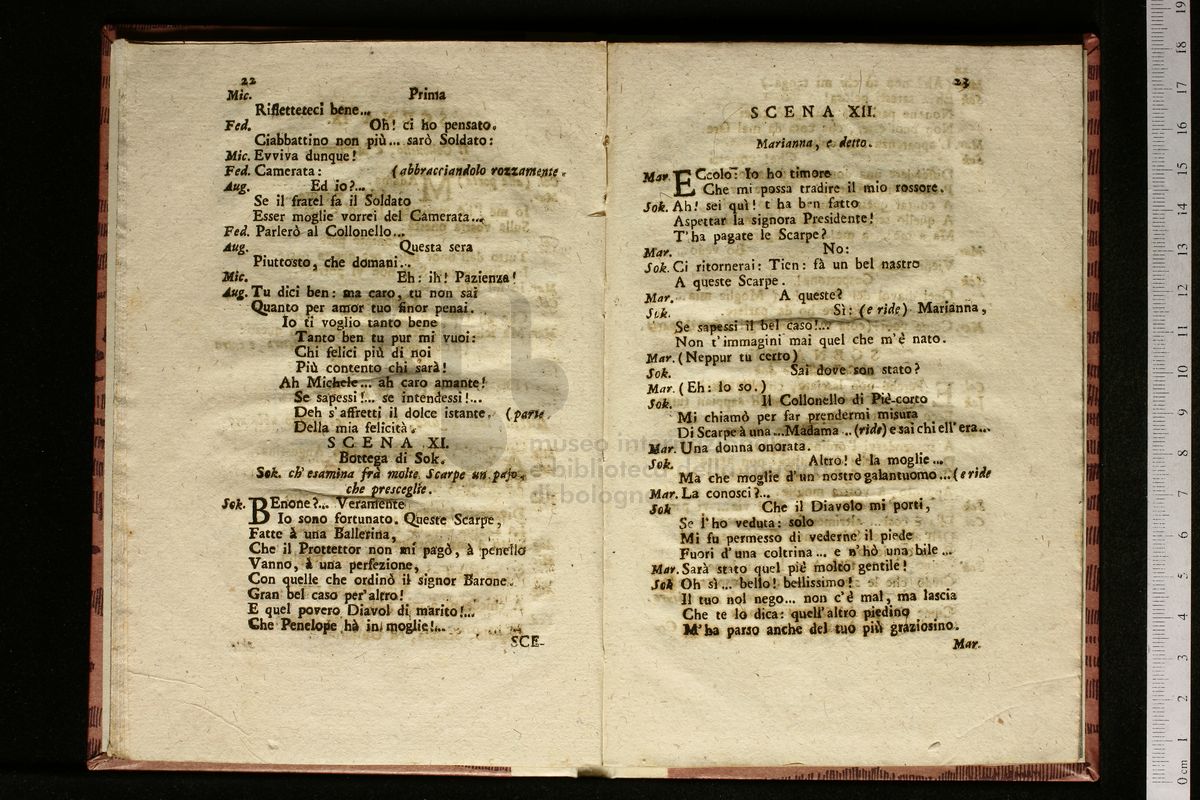 22
Mic. Prima
Rifletteteci bene...
Fed. Oh! ci ho pensato.
Ciabbattino non più... sarò Soldato:
Mic. Evviva dunque!
Fed. Camerata: (abbracciandolo rozzamente.
Aug. Ed io?...
Se il fratel fa il Soldato
Esser moglie vorrei del Camerata...
Fed. Parlerò al Collonello...
Aug. Questa sera
Piuttosto, che domani...
Mic. Eh: ih! Pazienza!
Aug. Tu dici ben: ma caro, tu non sai
Quanto per amor tuo finor penai.
Io ti voglio tanto bene
Tanto ben tu pur mi vuoi:
Chi felici più di noi
Più contento chi sarà!
Ah Michele... ah caro amante!
Se sapessi!... se intendessi!...
Deh s'affretti il dolce istante. (parte.
Della mia felicità.
SCENA XI.
Bottega di Sok.
Sok. ch'esamina frà molte Scarpe un pajo,
che presceglie.
Sok. BEnone?... Veramente
Io sono fortunato. Queste Scarpe,
Fatte à una Ballerina,
Che il Prottettor non mi pagò, à penello
Vanno, à una perfezione,
Con quelle che ordinò il signor Barone.
Gran bel caso per'altro!
E quel povero Diavol di marito!...
Che Penelope hà in moglie!...
SCE-
23
SCENA XII.
Marianna, e detto.
Mar. ECcolo: Io ho timore
Che mi possa tradire il mio rossore.
Sok. Ah! sei quì! t'ha ben fatto
Aspettar la signora Presidente!
T'ha pagate le Scarpe?
Mar. No:
Sok. Ci ritornerai: Tien: fà un bel nastro
A queste Scarpe.
Mar. A queste?
Sok. Sì: (e ride) Marianna,
Se sapessi il bel caso!...
Non t'immagini mai quel che m'è nato.
Mar. (Neppur tu certo)
Sok. Sai dove son stato?
Mar. (Eh: lo so.)
Sok. Il Collonello di Piè-corto
Mi chiamò per far prendermi misura
Di Scarpe à una... Madama .. (ride) e sai chi ell'era...
Mar. Una donna onorata.
Sok. Altro! è la moglie...
Ma che moglie d'un nostro galantuomo... (e ride
Mar. La conosci?...
Sok Che il Diavolo mi porti,
Se l'ho veduta: solo
Mi fu permesso di vederne il piede
Fuori d'una coltrina... e n'hò una bile...
Mar. Sarà stato quel piè molto gentile!
Sok Oh sì... bello! bellissimo!
Il tuo nol nego... non c'è mal, ma lascia
Che te lo dica: quell'altro piedino
M'ha parso anche del tuo più graziosino.
Mar.